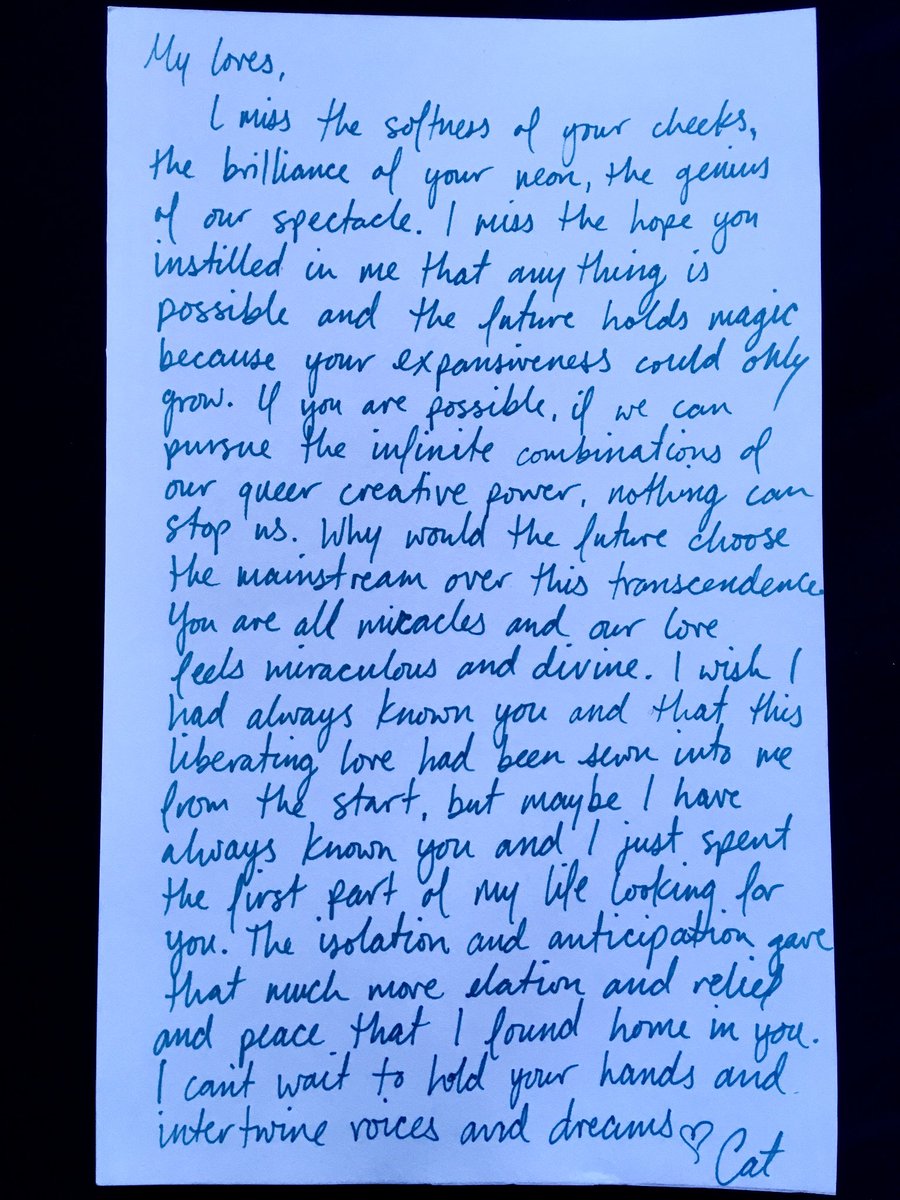 My loves,
I miss the softness of your cheeks,
the brilliance of your neon, the genius
of our spectacle. I miss the hope you
instilled in me that anything is
possible and the future holds magic
because your expansiveness could only
grow. If you are possible, if we can
pursue the infinite combinations of
our queer creative power, nothing can
stop us. Why would the future choose
the mainstream over this transcendence
You are all miracles and our love
feels miraculous and divine. I wish I
had always known you and that this
liberating love had been sewn into me
from the start, but maybe I have
always known you and I just spent
the first part of my life looking for
you. The isolation and anticipation gave
that much more elation and relief
and peace that I found home in you.
I can't wait to hold your hands and
intertwine voices and dreams ♡
Cat